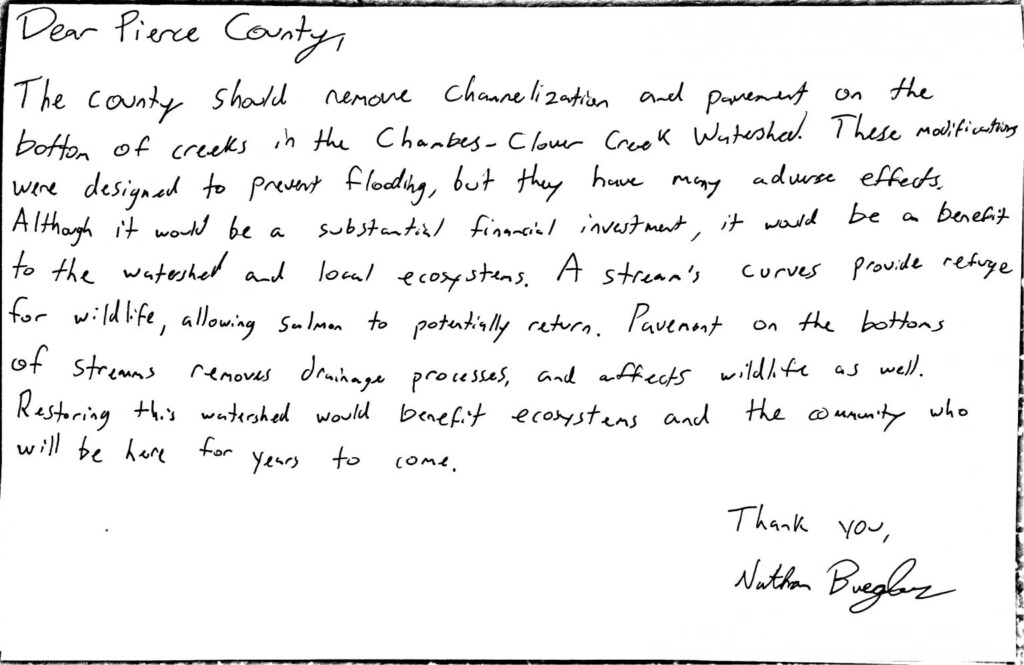 Dear Pierce County,
The county should remove channelization and pavement on the
bottom of creeks in the Chambes-Clover Creek Watershed. These modifications
were designed to prevent flooding, but they have many adverse effects.
Although it would be a substantial financial investment, it would be a benefit
to the watershed and local ecosystems. A stream's curves provide refuge
for wildlife, allowing salmon to potentially return. Pavement on the bottoms
of streams removes drainage processes, and affects wildlife as well.
Restoring this watershed would benefit ecosystems and the community who
will be here for years to come.
Thank you,
Nathan